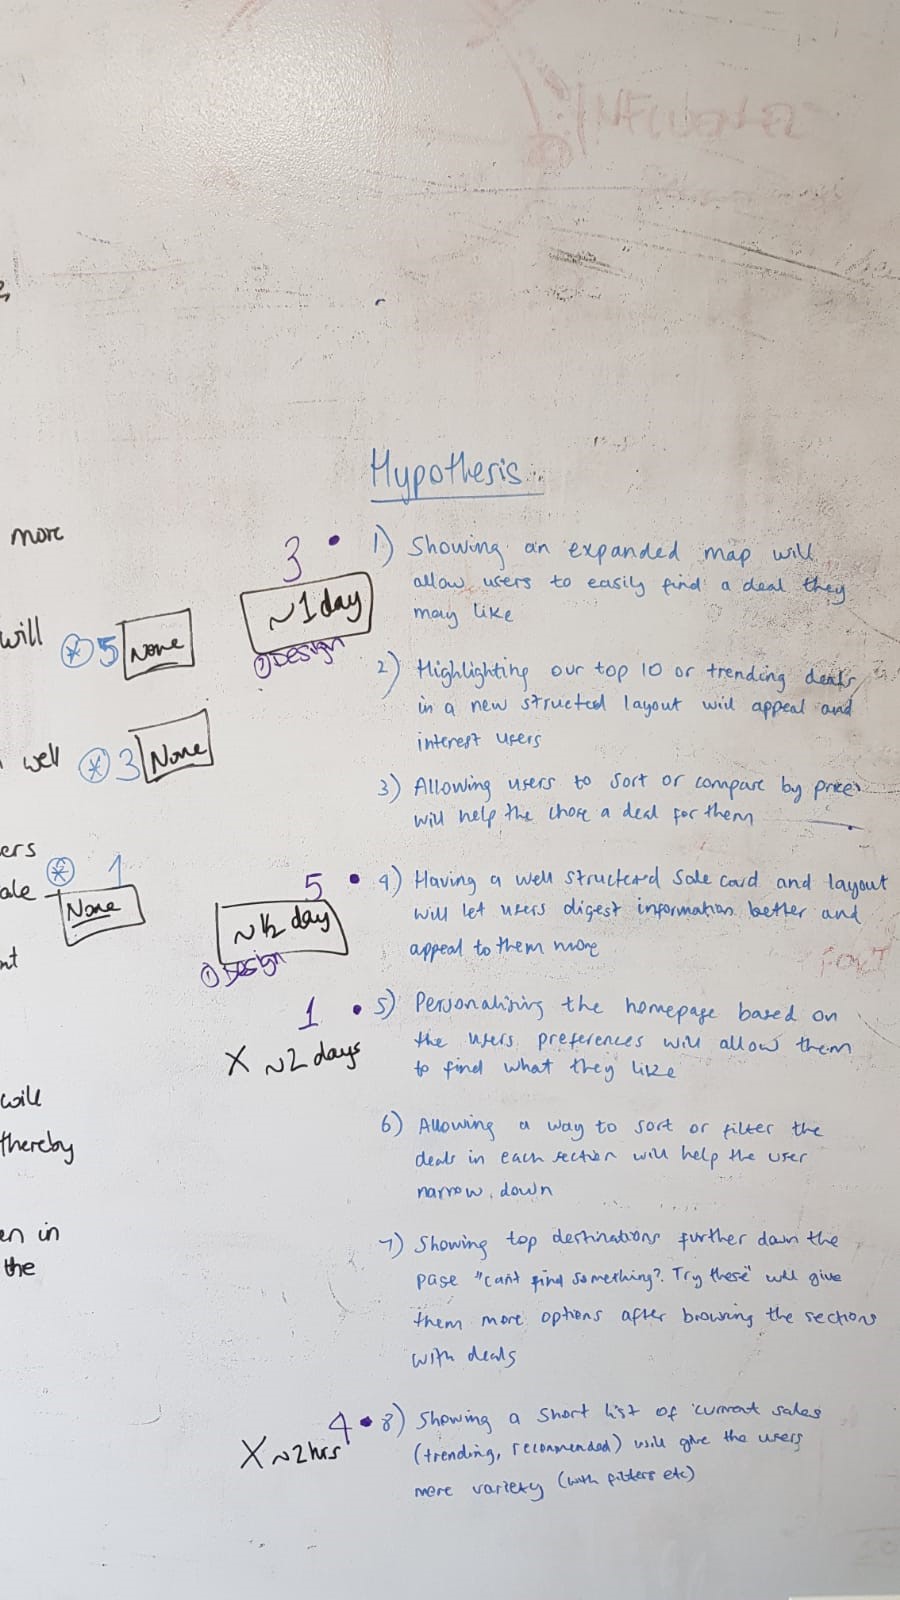 Hypothesis
more
3 • 1) Showing an expanded map will
allow users to easily find a deal they
may like
~1 day
① Design
will * 5 None
2) Highlighting our top 10 or trending deals
in a new structed layout will appeal and
interest users
well * 3 None
3) Allowing users to sort or compare by price
will help the chose a deal for them
ers
ale * 1
None
5 • 4) Having a well structered sale card and layout
will let users digest information better and
appeal to them more
~1/2 day
① Design
nt
FONT
1 • 5) Personalising the homepage based on
the users preferences will allow them
to find what they like
X ~2 days
will
thereby
6) Allowing a way to sort or filter the
deals in each section will help the user
narrow down
en in
the
7) Showing top destinations further down the
page "cant find something? Try these" will give
them more options after browsing the sections
with deals
4 • 8) Showing a short list of current sales
(trending, recommended) will give the users
more variety (with filters etc)
X ~2hrs